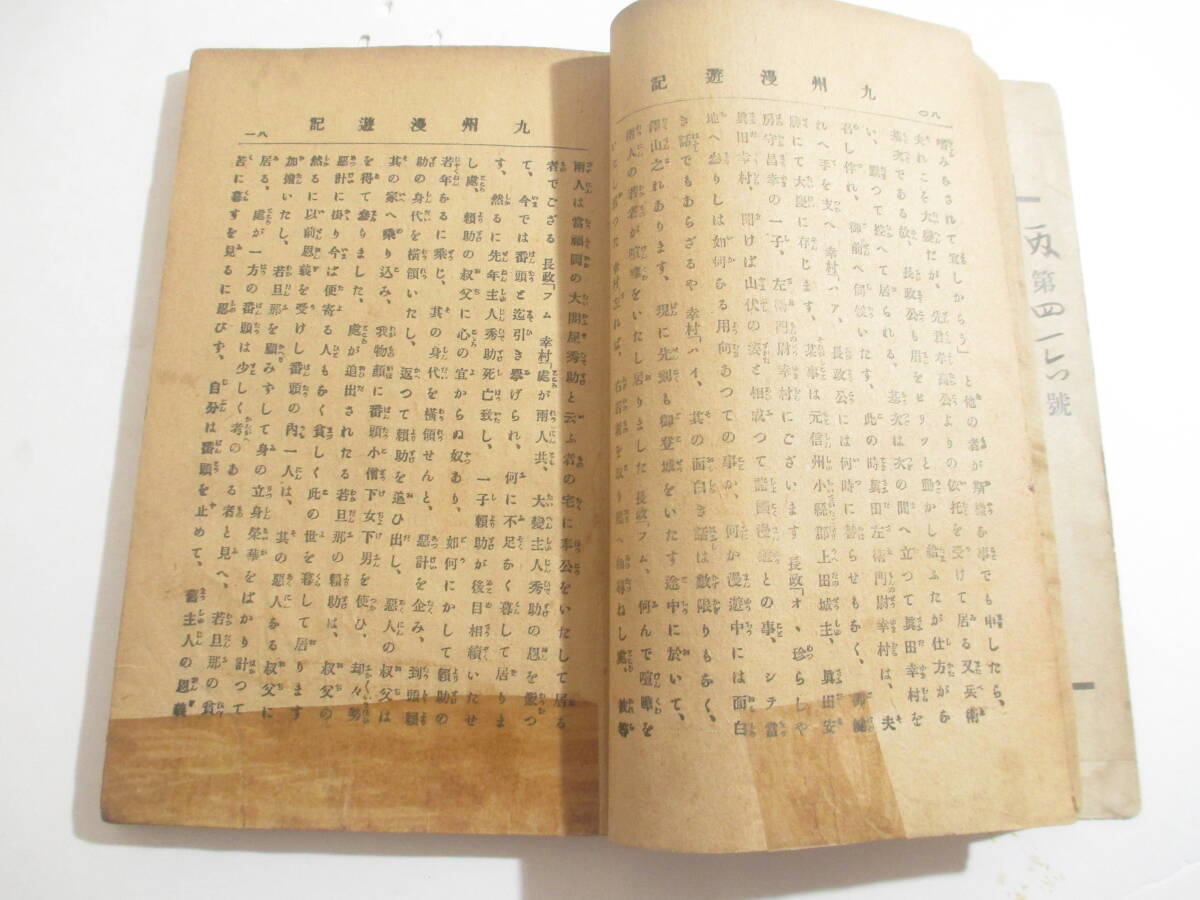 九州漫遊記
八〇
て宜しからう」と他の者が斯樣な事でも申したら、
夫れこそ大變だが、先君孝高公よりの依托を受けて居る又兵術
基次である故、長政公も用をピリッと動かし給ふたが仕方がな
い、默つて控へて居られる、基次は次の間へ立つて眞田幸村を
召し伴れ、御前へ伺候いたす。此の時眞田左衛門尉幸村は、夫
れへ手を支へ 幸村「ハア、長政公には何時に替らせもなく、御健
勝にて大慶に存じます、某事は元信州小縣郡上田城主、眞田安
房守昌幸の一子、左衛門四尉幸村にございます 長政「オヽ珍らしや
眞田幸村、聞けば山伏の姿と相成つて諸國漫遊との事、シテ當
地へ參りしは如何なる用向あつての事か、何か漫遊中には面白
き話でもあらざるや 幸村「ハイ、其の面白き話は數限りもなく、
澤山之れあります、現に先刻も御登城をいたす途中に於いて、
兩人の若者が喧嘩をいたし居りました 長政「フム、何んで喧嘩を
いたし居つた 幸村「されば、右若者を取り鎭へ相尋ねし處、彼等
九州漫遊記
八一
兩人は當福岡の大問屋秀助と云ふ者の宅に奉公をいたして居る
者でござる 長政「フム 幸村「處が兩人共、大變主人秀助の恩を蒙つ
て、今では番頭と迄引き擧げられ、何に不足なく暮して居りま
す、然るに先年主人秀助死亡致し、一子頼助が後目相續いたせ
し處、頼助の叔父に心の宜からぬ奴あり、如何にかして頼助の
若年なるに乘じ、其の身代を橫領せんと、惡計を企み、到頭頼
助の身代を橫領いたし、返つて頼助を追ひ出し、惡人の叔父は
其の家へ乘り込み、我物顔に番頭小僧下女下男を使ひ、却々勢
を得て參りました、處が追出されたる若旦那の頼助は、叔父の
惡計に掛り今ば便寄る人もなく貧しく此の世を暮して居ります
然るに以前恩義を受けし番頭の內一人は、其の惡人なる叔父に
加擔いたし、若旦那を顧みずして身の立身榮華をばかり計つて
居る、處が一方の番頭は少しく考のある者と見へ、若旦那の貧
苦に暮すを見るに忍びず、自分は番頭を止めて、舊主人の恩義
第四
號